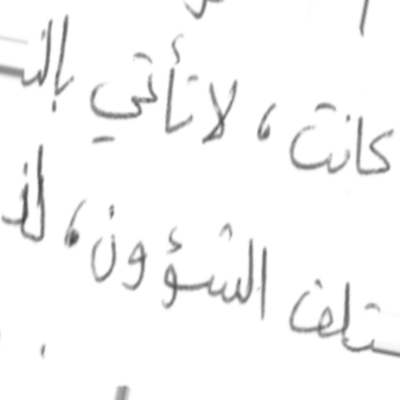 كانت ، لا تأتي بالنـ
ختلف الشؤون ، لأنـ